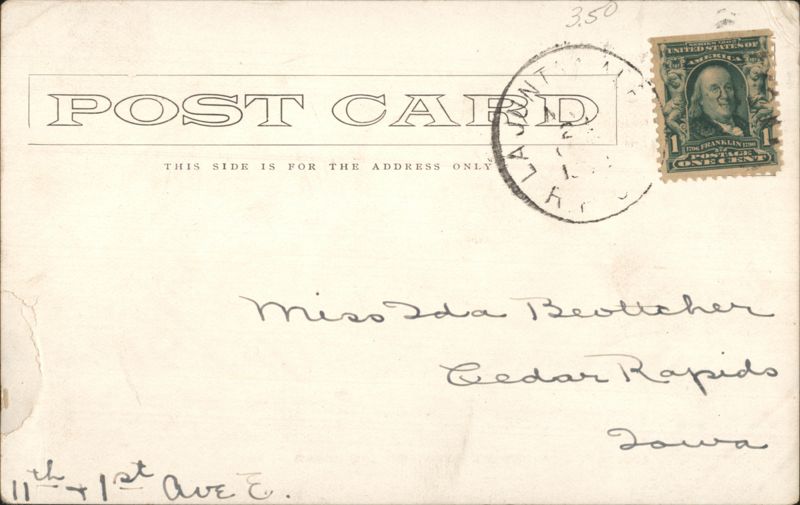 3.50
SERIES 1902
UNITED STATES OF
AMERICA
1 1706 FRANKLIN 1790 1
POSTAGE
ONE CENT
LA JUNTA
POST CARD
THIS SIDE IS FOR THE ADDRESS ONLY
Miss Ida Beottcher
Cedar Rapids
Iowa
11th + 1st Ave E.